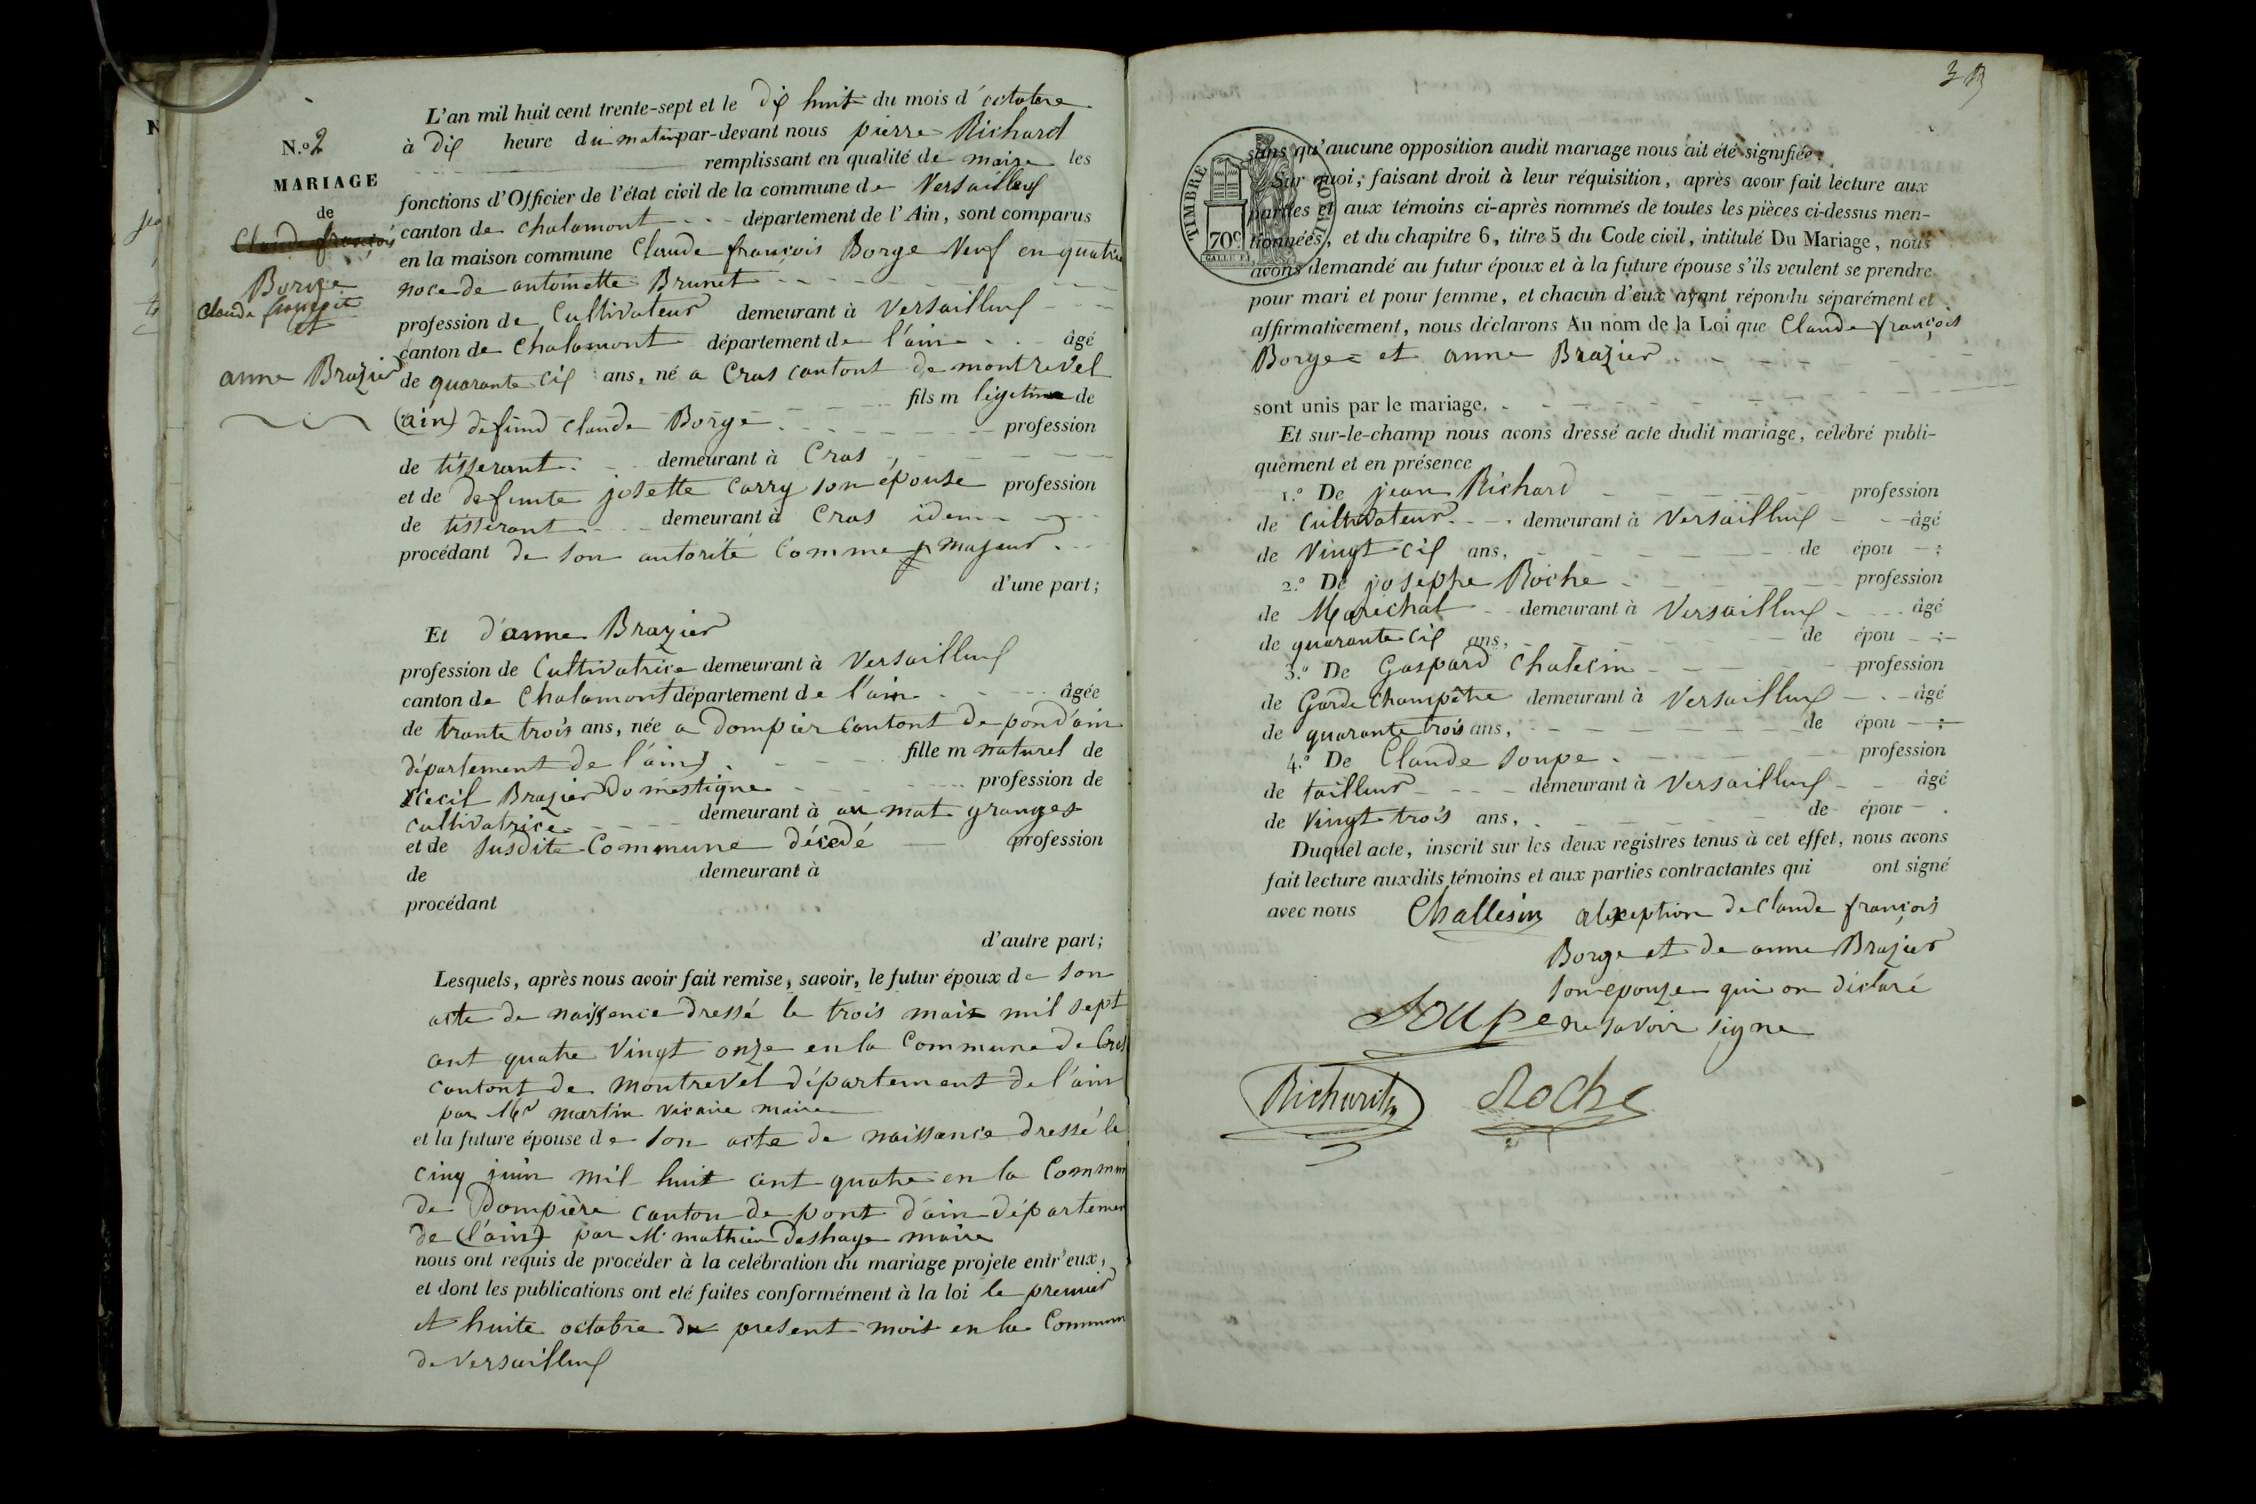 N.º 2
MARIAGE
de
Claude françois
Borge
Claude françois
et
anne Brazier
L'an mil huit cent trente-sept et le dix huit du mois d'octobre
à dix heure du matin par-devant nous pierre Richard
remplissant en qualité de maire les
fonctions d'Officier de l'état civil de la commune de Versailleux
canton de chalamont département de l'Ain, sont comparus
en la maison commune Claude françois Borge Veuf en quatrie
noce de antoinette Brunet
profession de Cultivateur demeurant à Versailleux
canton de Chalamont département de l'ain âgé
de quarante cix ans, né a Cras cantont de montrevel
(ain) fils m légitime de
defund Claude Borge profession
de tisserant demeurant à Cras
et de defunte josette Carry son épouse profession
de tisserant demeurant à Cras idem
procédant de son autorité Comme majeur
d'une part;
Et d'anne Brazier
profession de Cultivatrice demeurant à Versailleux
canton de Chalamont département de l'ain âgée
de trante trois ans, née a Dompier Cantont de pond'ain
département de l'ain) fille m naturel de
Cecil Brazier Doméstique profession de
cultivatrice demeurant à au mat granges
et de susdite Commune décédé profession
de demeurant à
procédant
d'autre part;
Lesquels, après nous avoir fait remise, savoir, le futur époux de son
acte de naissence dressé le trois mais mil sept
cent quatre Vingt onze en la Commune de Cras
cantont de montrevel département de l'ain
par Mr martin vicaire maire
et la future épouse de son acte de naissance dressé le
cinq juin mil huit cent quatre en la Commun
de Dompière canton de pont d'ain département
de (l'ain) par Mr mathieu Deshaye maire
nous ont requis de procéder à la celébration du mariage projete entr'eux,
et dont les publications ont eté faites conformément à la loi le premier
et huite octobre du present mois en la Commun
de Versailleux
TIMBRE ROYAL
70c.
sans qu'aucune opposition audit mariage nous ait été signifiée;
Sur quoi, faisant droit à leur réquisition, après avoir fait lecture aux
parties et aux témoins ci-après nommés de toutes les pièces ci-dessus men-
tionnées, et du chapitre 6, titre 5 du Code civil, intitulé Du Mariage, nous
avons demandé au futur époux et à la future épouse s'ils veulent se prendre
pour mari et pour femme, et chacun d'eux ayant répondu séparément et
affirmativement, nous déclarons Au nom de la Loi que Claude françois
Borge et anne Brazier
sont unis par le mariage.
Et sur-le-champ nous avons dressé acte dudit mariage, célébré publi-
quement et en présence
1.º De jean Richard profession
de Cultivateur demeurant à Versailleux âgé
de Vingt cix ans, de épou ;
2.º De josephe Roche profession
de Maréchal demeurant à Versailleux âgé
de quarante cix ans, de épou ;
3.º De Gaspard Chalesin profession
de Garde Champêtre demeurant à Versailleux âgé
de quarante trois ans, de épou ;
4.º De Claude Soupe profession
de tailleur demeurant à Versailleux âgé
de Vingt trois ans, de épou .
Duquel acte, inscrit sur les deux registres tenus à cet effet, nous avons
fait lecture auxdits témoins et aux parties contractantes qui ont signé
avec nous Challesin alexeption de Claude françois
Borge et de anne Brazier
son epouze qui on déclaré
Soupe ne savoir signe
Richard Roche